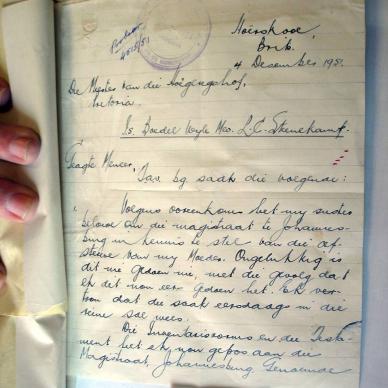 4515/51
Brits.
4 Desember 1951
Die Meester van die Hooggeregshof,
Pretoria.
Is. Boedel Wyle Mev. L. C. Steenekamp.
Geagte Meneer,
Ins. bg. saak die volgende:
Volgens ooreenkoms het my suster
beloof om die magistraat te Johannes-
burg in kennis te stel van die af-
sterwe van my Moeder. Ongelukkig is
dit nie gedoen nie, met die gevolg dat
ek dit nou eers gedoen het. Ek ver-
trou dat die saak eersdaags in die
reine sal wees.
Die Inventarisvorms en die Testa-
ment het ek nou gepos aan die
Magistraat, Johannesburg. Genoemde